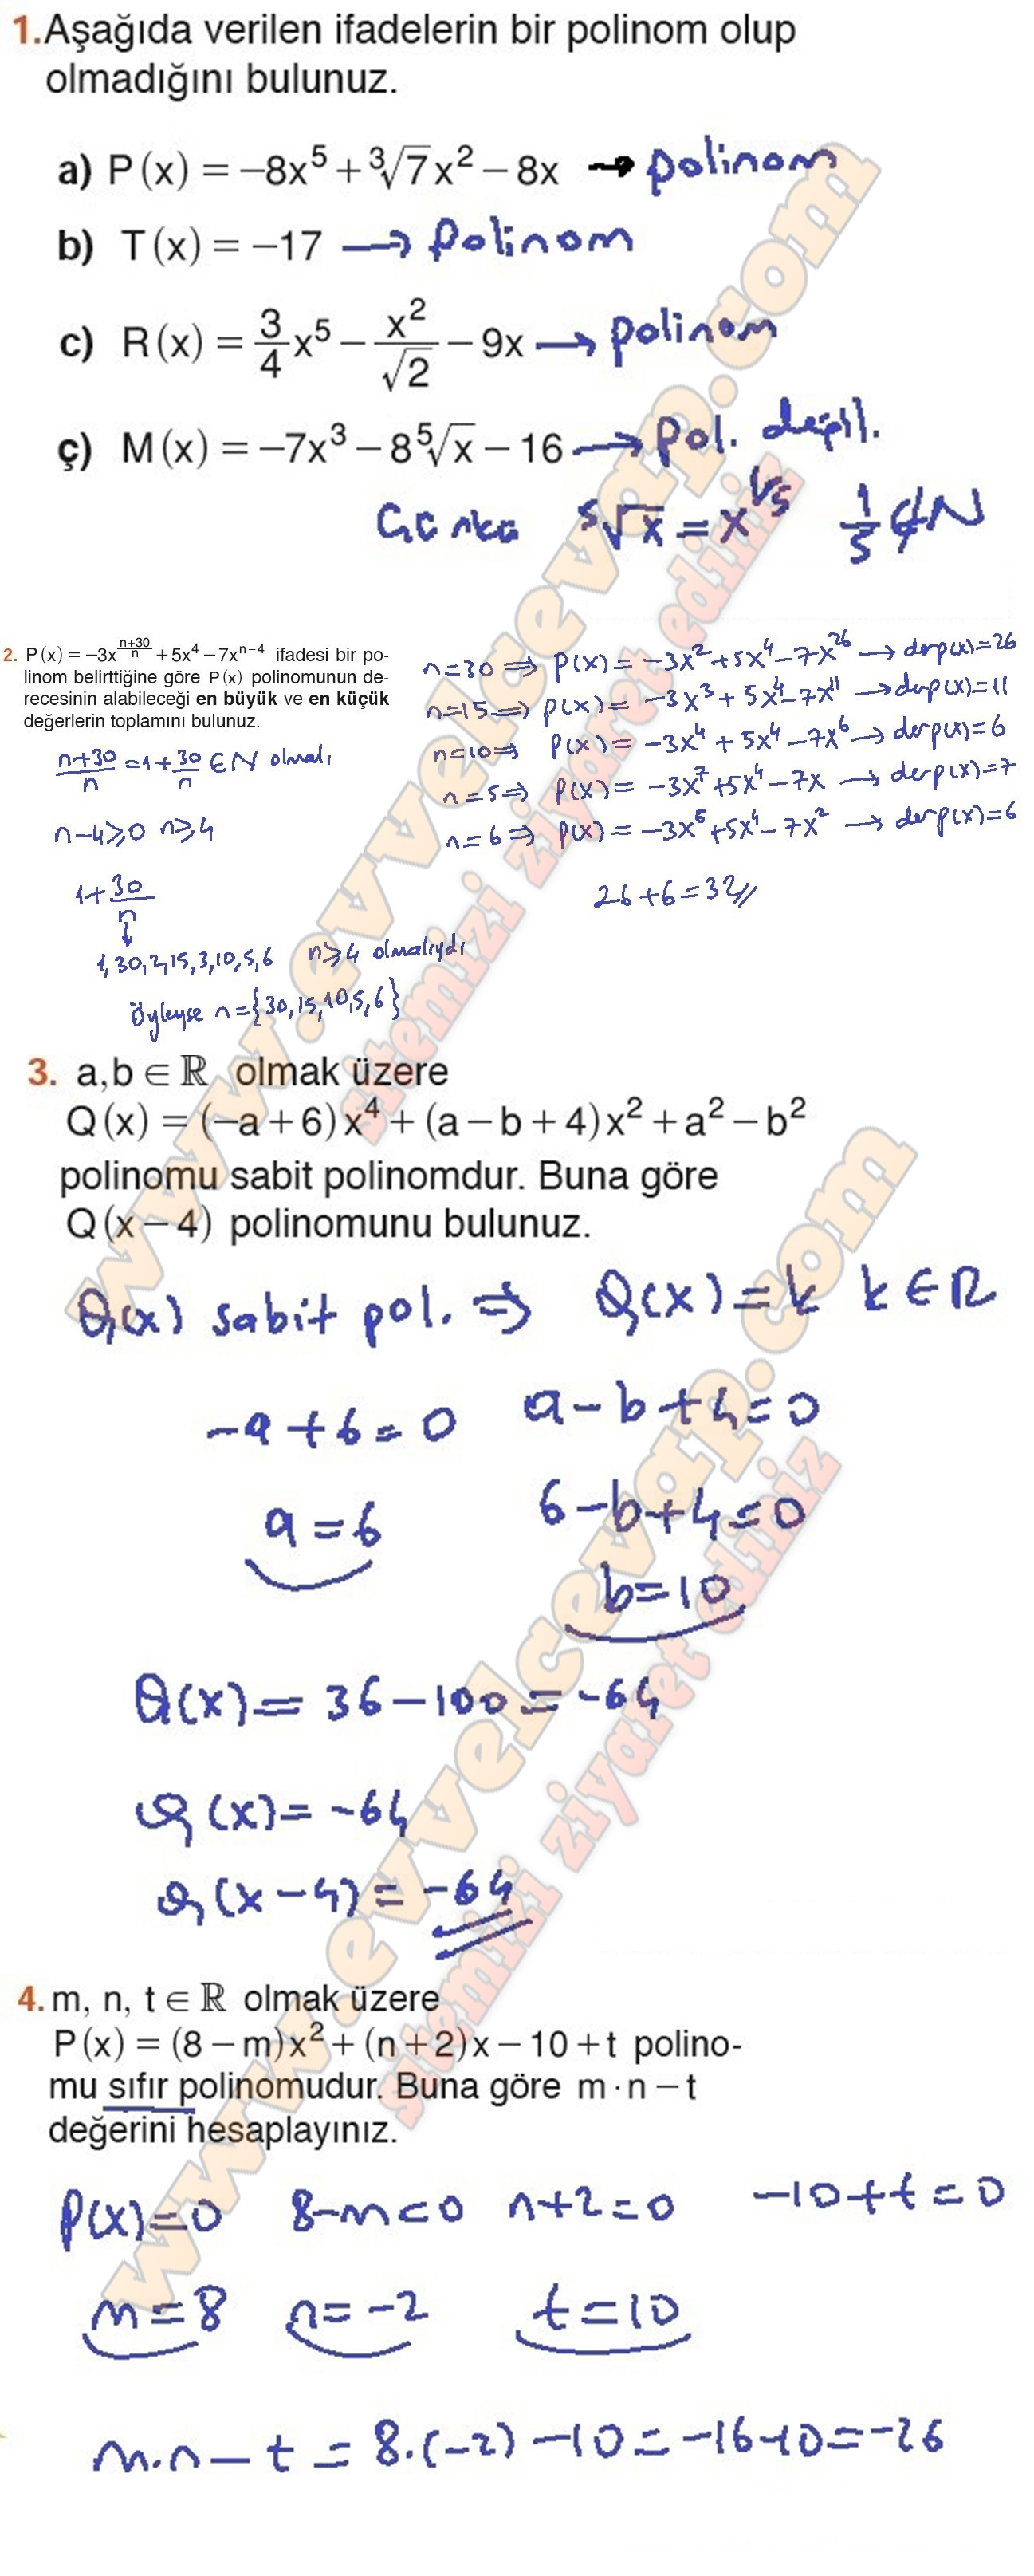 1.Aşağıda verilen ifadelerin bir polinom olup
olmadığını bulunuz.
a) P(x) = −8x⁵ + ∛7x² − 8x → polinom
b) T(x) = −17 → polinom
c) R(x) = 3/4 x⁵ − x²/√2 − 9x → polinom
ç) M(x) = −7x³ − 8⁵√x − 16 → Pol. değil.
Çünkü ⁵√x = x^1/5 1/5 ∉ N
2. P(x) = −3x^(n+30)/n + 5x⁴ − 7xⁿ⁻⁴ ifadesi bir po-
linom belirttiğine göre P(x) polinomunun de-
recesinin alabileceği en büyük ve en küçük
değerlerin toplamını bulunuz.
(n+30)/n = 1 + 30/n ∈ N olmalı
n−4⩾0 n⩾4
1 + 30/n
↓
1, 30, 2, 15, 3, 10, 5, 6 n⩾4 olmalıydı
Öyleyse n={30,15,10,5,6}
n=30 ⇒ P(x) = −3x² + 5x⁴ − 7x²⁶ → der p(x) = 26
n=15 ⇒ P(x) = −3x³ + 5x⁴ − 7x¹¹ → der p(x) = 11
n=10 ⇒ P(x) = −3x⁴ + 5x⁴ − 7x⁶ → der p(x) = 6
n=5 ⇒ P(x) = −3x⁷ + 5x⁴ − 7x → der p(x) = 7
n=6 ⇒ P(x) = −3x⁶ + 5x⁴ − 7x² → der p(x) = 6
26+6=32//
3. a,b ∈ ℝ olmak üzere
Q(x) = (−a+6)x⁴ + (a−b+4)x² + a² − b²
polinomu sabit polinomdur. Buna göre
Q(x−4) polinomunu bulunuz.
Q(x) sabit pol. ⇒ Q(x) = k k ∈ R
−a+6=0 a−b+4=0
a=6 6−b+4=0
b=10
Q(x) = 36−100 = −64
Q(x) = −64
Q(x−4) = −64
4. m, n, t ∈ ℝ olmak üzere
P(x) = (8−m)x² + (n+2)x − 10 + t polino-
mu sıfır polinomudur. Buna göre m·n − t
değerini hesaplayınız.
P(x)=0 8−m=0 n+2=0 −10+t=0
m=8 n=−2 t=10
m.n−t = 8.(−2) −10 = −16−10 = −26
www.evvelcevap.com
sitemizi ziyaret ediniz
www.evvelcevap.com
sitemizi ziyaret ediniz